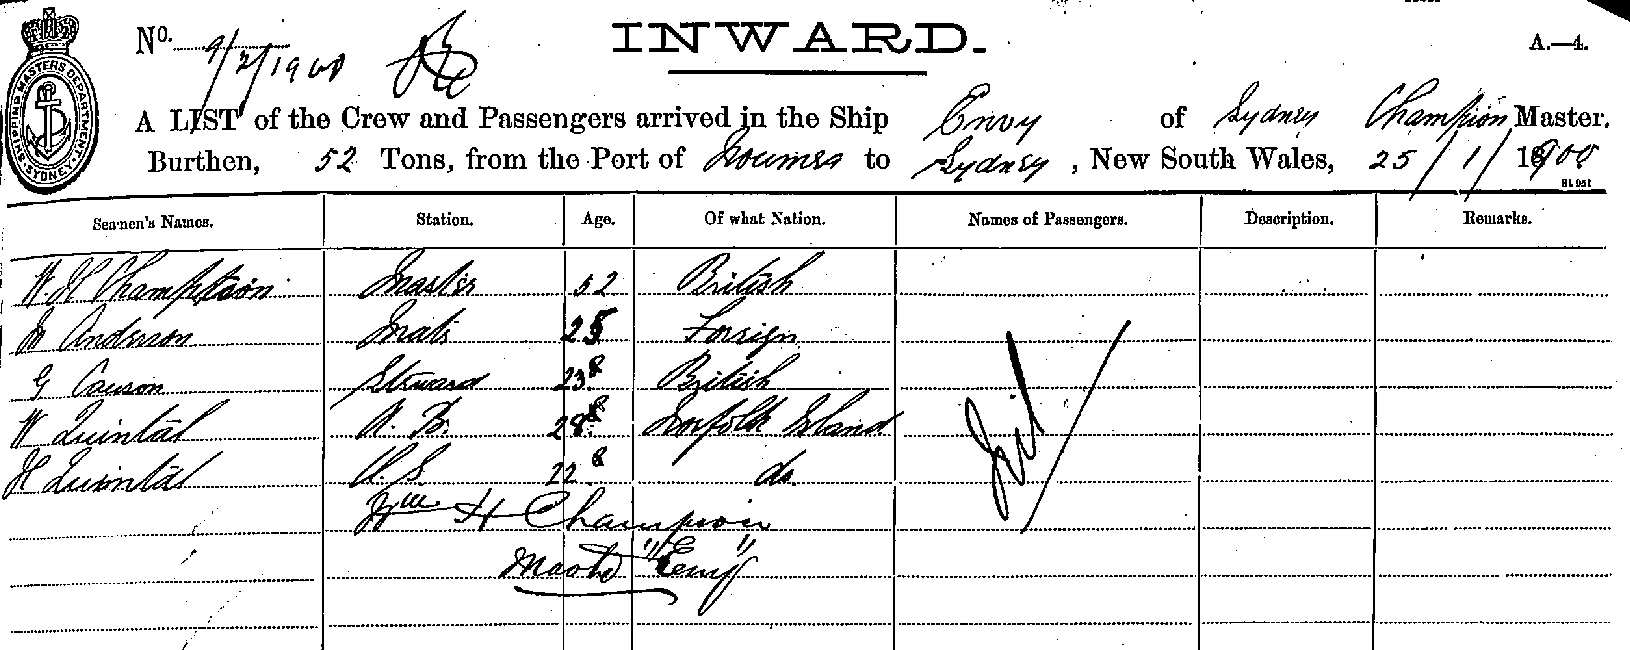 INWARD.
No. 9/2/1900
A.—4.
SHIPPING MASTERS DEPARTMENT SYDNEY
A LIST of the Crew and Passengers arrived in the Ship Envy of Sydney Champion Master.
Burthen, 52 Tons, from the Port of Noumea to Sydney, New South Wales, 25/1/1900
Seamen's Names. Station. Age. Of what Nation. Names of Passengers. Description. Remarks.
W. H Champion Master 52 British
M Anderson Mate 25 Foreign
G Causon Steward 23 British
W Quintal A. B. 28 Norfolk Island
H Quintal O. S. 22 do.
Nil
Wm H Champion
Master "Envy"